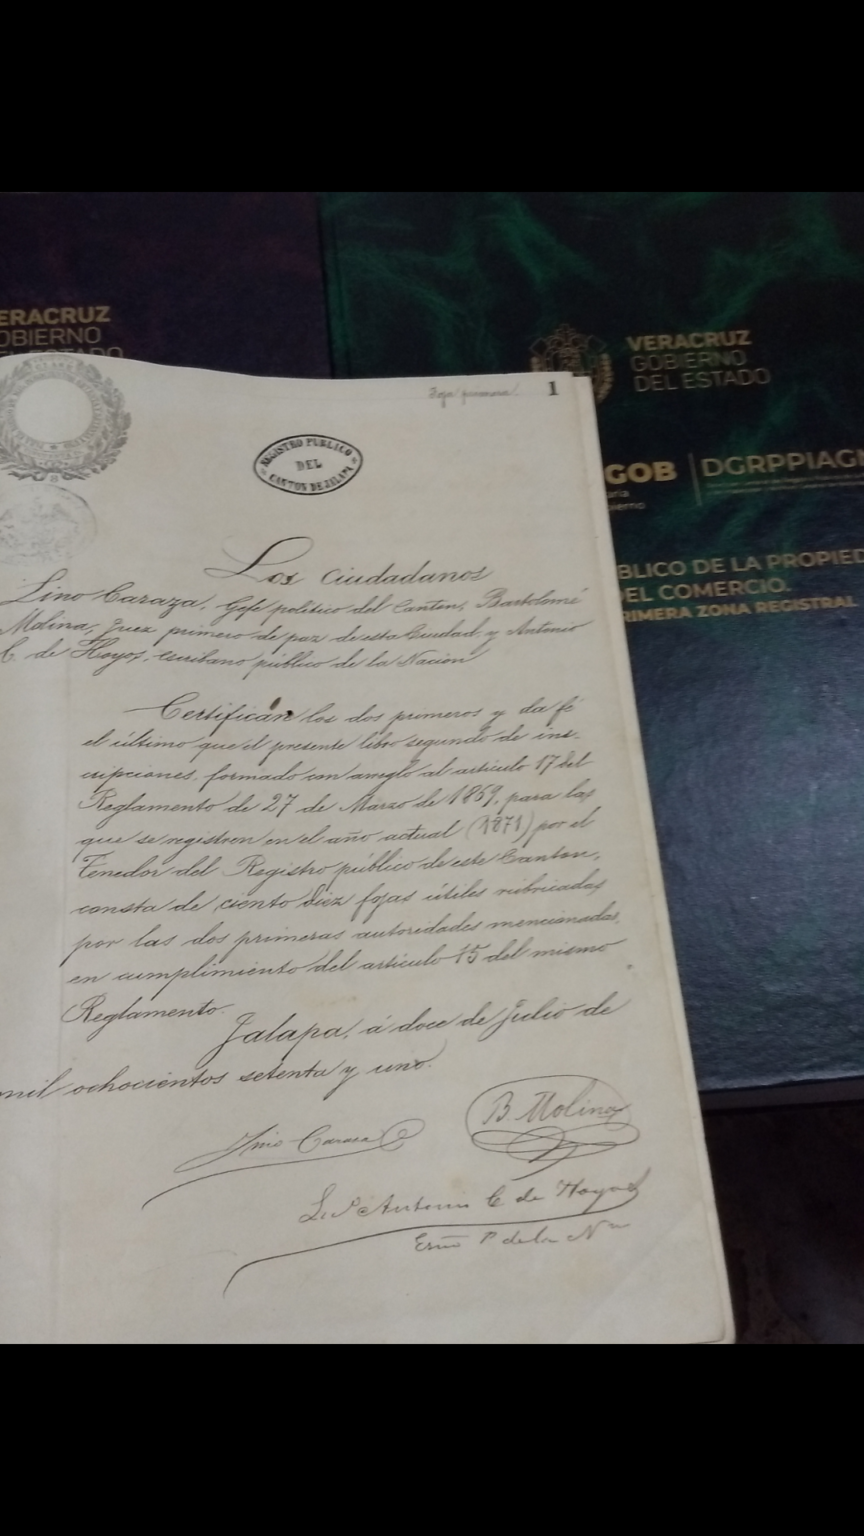 VERACRUZ
GOBIERNO
DEL ESTADO
ERACRUZ
OBIERNO
EL ESTADO
GOB
DGRPPIAGN
BLICO DE LA PROPIED
DEL COMERCIO.
RIMERA ZONA REGISTRAL
Foja primera. 1
REGISTRO PUBLICO
DEL
CANTON DE JALAPA
Los Ciudadanos
Lino Caraza, Gefe político del Canton, Bartolomé
Molina, Juez primero de paz de esta Ciudad y Antonio
C. de Hoyos, escribano público de la Nación
Certifican los dos primeros y da fé
el último que el presente libro segundo de ins-
cripciones, formado con arreglo al artículo 17 del
Reglamento de 27 de Marzo de 1869, para las
que se registren en el año actual (1871) por el
Tenedor del Registro público de este Canton,
consta de ciento diez fojas útiles rubricadas
por las dos primeras autoridades mencionadas,
en cumplimiento del artículo 15 del mismo
Reglamento.
Jalapa, á doce de Julio de
mil ochocientos setenta y uno.
Lino Caraza
B. Molina
L. P. Antonio C. de Hoyos
Esno. P. de la Non